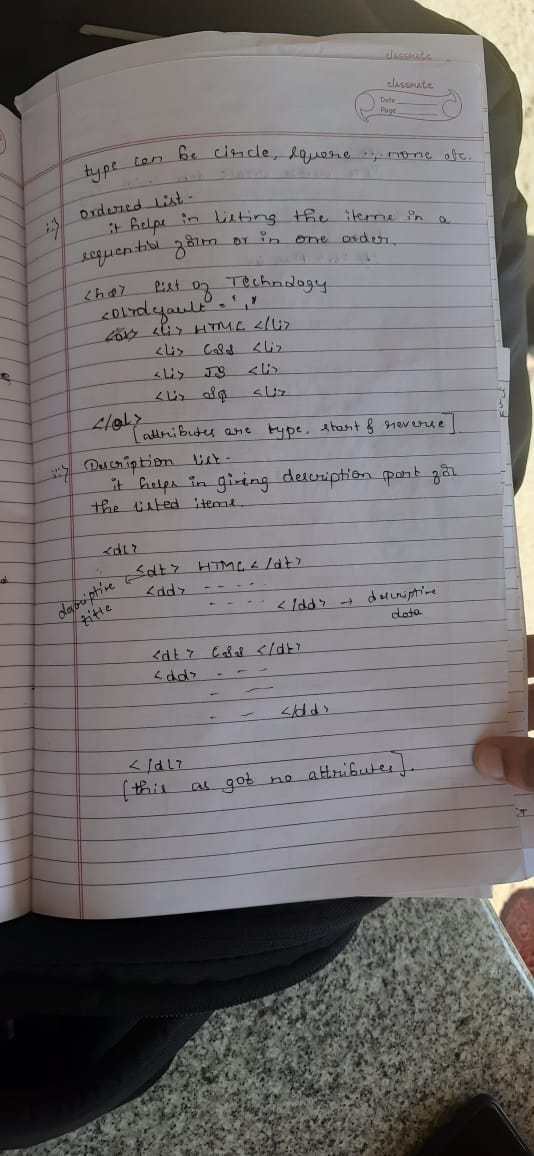 classmate
classmate
Date
Page
type can be circle, square, none etc.
ii) ordered list -
it helps in listing the items in a
sequential form or in one order.
<h2> List of Technology
default = "1"
<ol> <li> HTML </li>
<li> CSS <li>
<li> JS <li>
<li> <li>
</ol>
[attributes are type, start & reverse]
iii) Description list -
it helps in giving description part for
the listed items.
<dl>
<dt> HTML </dt>
descriptive title
<dd> - - - - -
- - - - </dd> → descriptive
data
<dt> CSS </dt>
<dd> - - -
- -
- - </dd>
</dl>
[this as got no attributes].